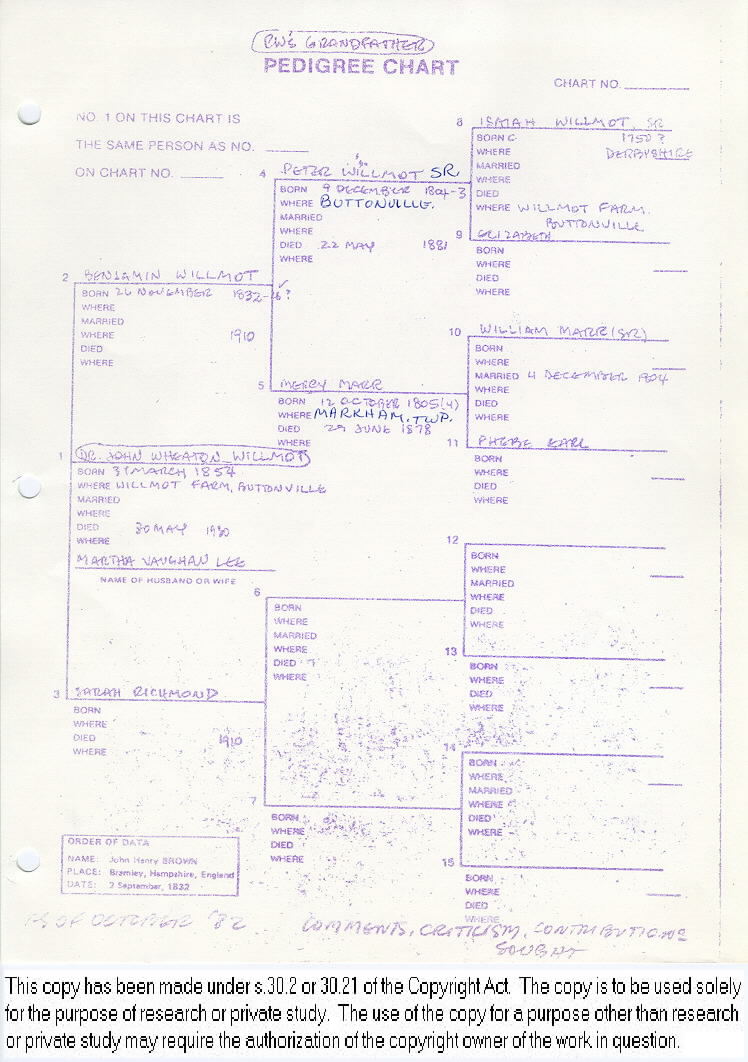 RW'S GRANDFATHER
PEDIGREE CHART
CHART NO.
NO. 1 ON THIS CHART IS
THE SAME PERSON AS NO.
ON CHART NO.
8 ISAIAH WILLMOT, SR
BORN C. 1750?
WHERE DERBYSHIRE
MARRIED
WHERE
DIED
WHERE WILLMOT FARM,
BUTTONVILLE
4 PETER WILLMOT SR
BORN 9 DECEMBER 1804-3
WHERE BUTTONVILLE.
MARRIED
WHERE
DIED 22 MAY 1881
WHERE
9 ELIZABETH
BORN
WHERE
DIED
WHERE
2 BENJAMIN WILLMOT
BORN 26 NOVEMBER 1832-?
WHERE
MARRIED
WHERE 1910
DIED
WHERE
10 WILLIAM MARR (SR)
BORN
WHERE
MARRIED 4 DECEMBER 1804
WHERE
DIED
WHERE
5 MERCY MARR
BORN 12 OCTOBER 1805(4)
WHERE MARKHAM, TWP.
DIED 29 JUNE 1878
WHERE
11 PHEBE EARL
BORN
WHERE
DIED
WHERE
1 DR. JOHN WHEATON WILLMOT
BORN 31 MARCH 1854
WHERE WILLMOT FARM, BUTTONVILLE
MARRIED
WHERE
DIED 30 MAY 1930
WHERE
MARTHA VAUGHAN LEE
NAME OF HUSBAND OR WIFE
12
BORN
WHERE
MARRIED
WHERE
DIED
WHERE
6
BORN
WHERE
MARRIED
WHERE
DIED
WHERE
13
BORN
WHERE
DIED
WHERE
3 SARAH RICHMOND
BORN
WHERE
DIED 1910
WHERE
14
BORN
WHERE
MARRIED
WHERE
DIED
WHERE
7
BORN
WHERE
DIED
WHERE
15
BORN
WHERE
DIED
WHERE
ORDER OF DATA
NAME: John Henry BROWN
PLACE: Bramley, Hampshire, England
DATE: 2 September, 1832
AS OF OCTOBER '82
COMMENTS, CRITICISM, CONTRIBUTIONS
SOUGHT
This copy has been made under s.30.2 or 30.21 of the Copyright Act. The copy is to be used solely
for the purpose of research or private study. The use of the copy for a purpose other than research
or private study may require the authorization of the copyright owner of the work in question.